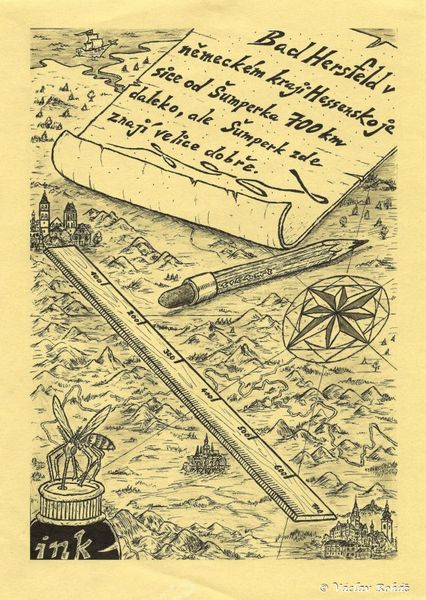 Bad Hersfeld v
německém kraji Hessensko je
sice od Šumperka 700 km
daleko, ale Šumperk zde
znají velice dobře.
100
200
300
400
500
600
700
ink
© Václav Roháč